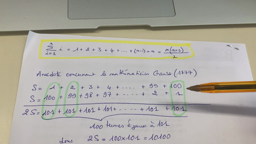 Σ i = 1 + 2 + 3 + 4 + ..... + (n-1) + n = n(n+1)/2
i=1
Anecdote concernant le mathématicien Gauss (1777)
S = 1 + 2 + 3 + 4 + ..... + 99 + 100
S = 100 + 99 + 98 + 97 + ..... + 2 + 1
2S = 101 + 101 + 101 + 101 + ..... + 101 + 101
100 termes égaux à 101
donc 2S = 100×101 = 10100